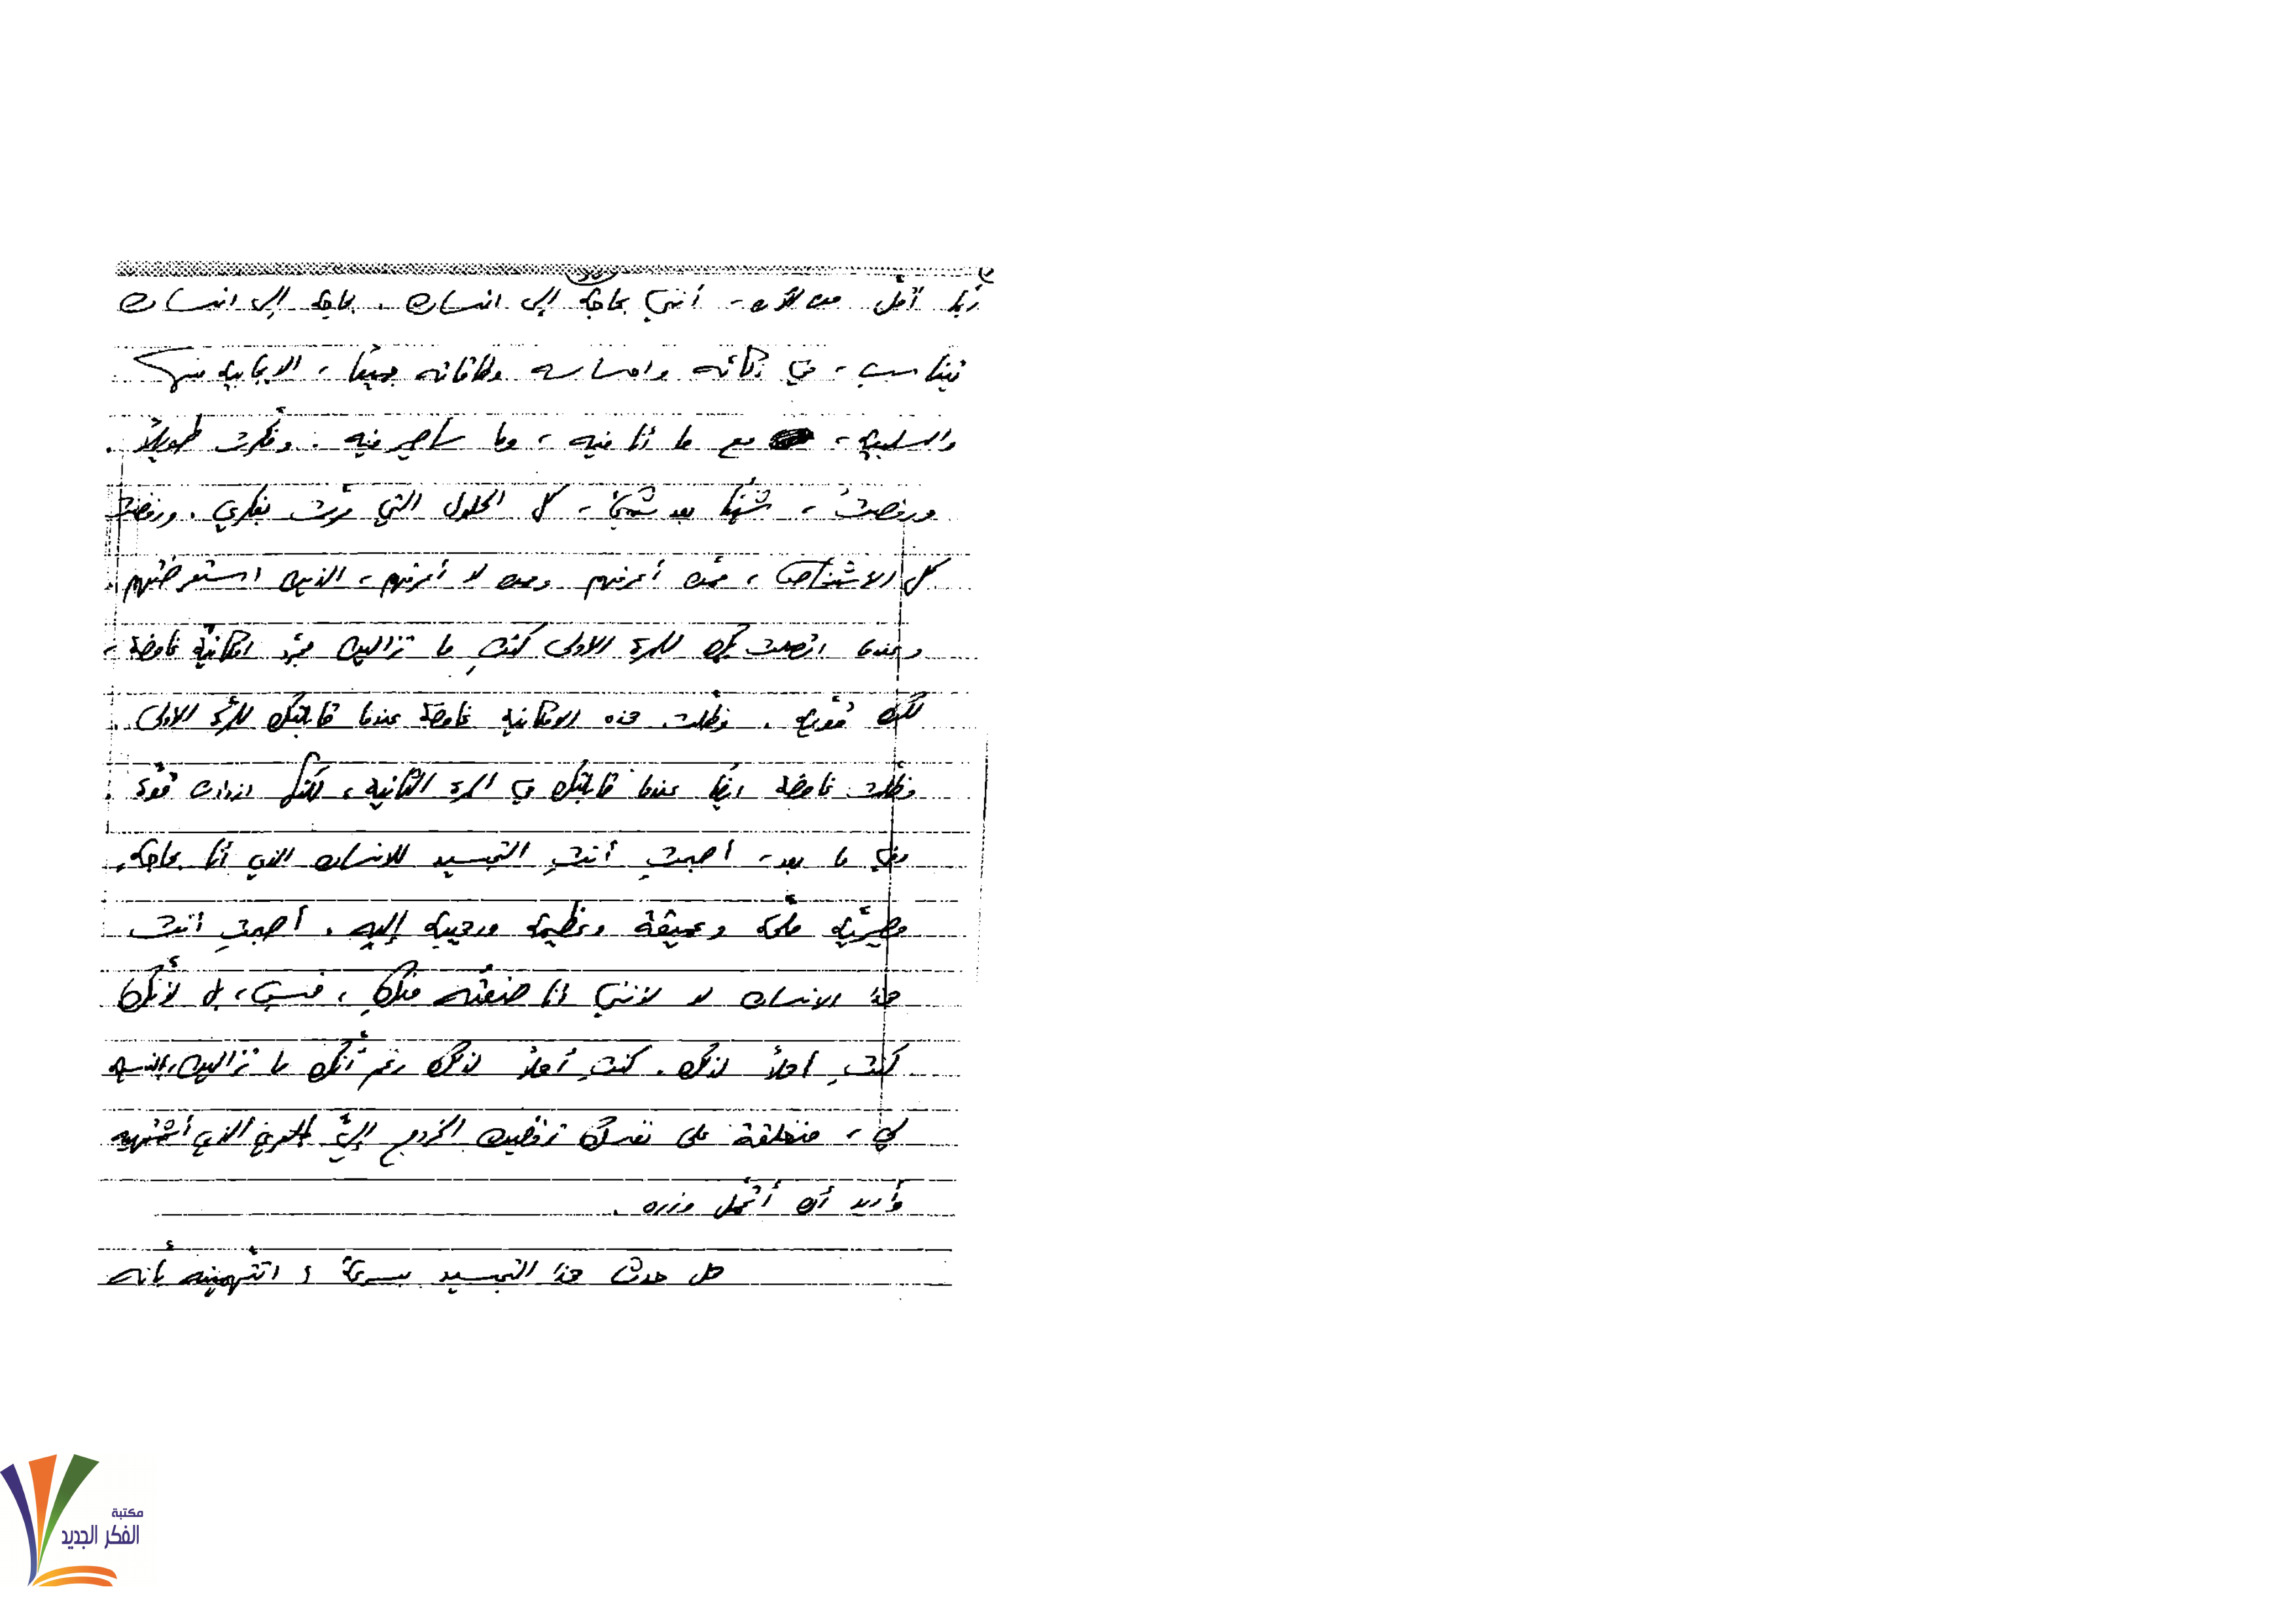 ربما أقل من الآن - أنني بحاجة إلى انسان. بحاجة إلى انسان
تتناسب، في ذكائه واحساسه وطاقاته جميعًا، الايجابية منها
والسلبية، مع ما أنا فيه، وما سأصير فيه. وفكرت طويلاً.
ورفضتُ، شيئًا بعد شيء، كل الحلول التي مرّت بفكري. ورفضت
كل الأشخاص، ممّن أعرفهم وممن لا أعرفهم، الذين استعرضتهم.
وعندما اتصلت بكِ للمرة الاولى كنتِ ما تزالين مجرّد امكانيّة غامضة،
لكن قويّة. وظلّت هذه الامكانية غامضة عندما قابلتكِ للمرّة الاولى.
وظلّت غامضة ايضًا عندما قابلتكِ في المرة الثانية، لكنها ازدادت قوّة.
وفي ما بعد، أصبحتِ أنتِ التجسيد للانسان الذي أنا بحاجة،
مصيريّة ملحّة وعميقة وعظيمة ورهيبة إليه. أصبحتِ أنتِ
هذا الانسان لا لأنني أنا صنعتُه منكِ، فحسب، بل لأنّكِ
كنتِ أهلاً لذلك. كنتِ أهلاً لذلك رغم أنّكِ ما تزالين، بالنسبة
لي، منغلقة على نفسك ترفضين الخروج إليَّ الذي أشتهيه
وأريد أن أتحمّل وزره.
هل حدث هذا التجسيد بسرعة؟ أتتّهمينه بأنه
مكتبة
الفكر الجديد